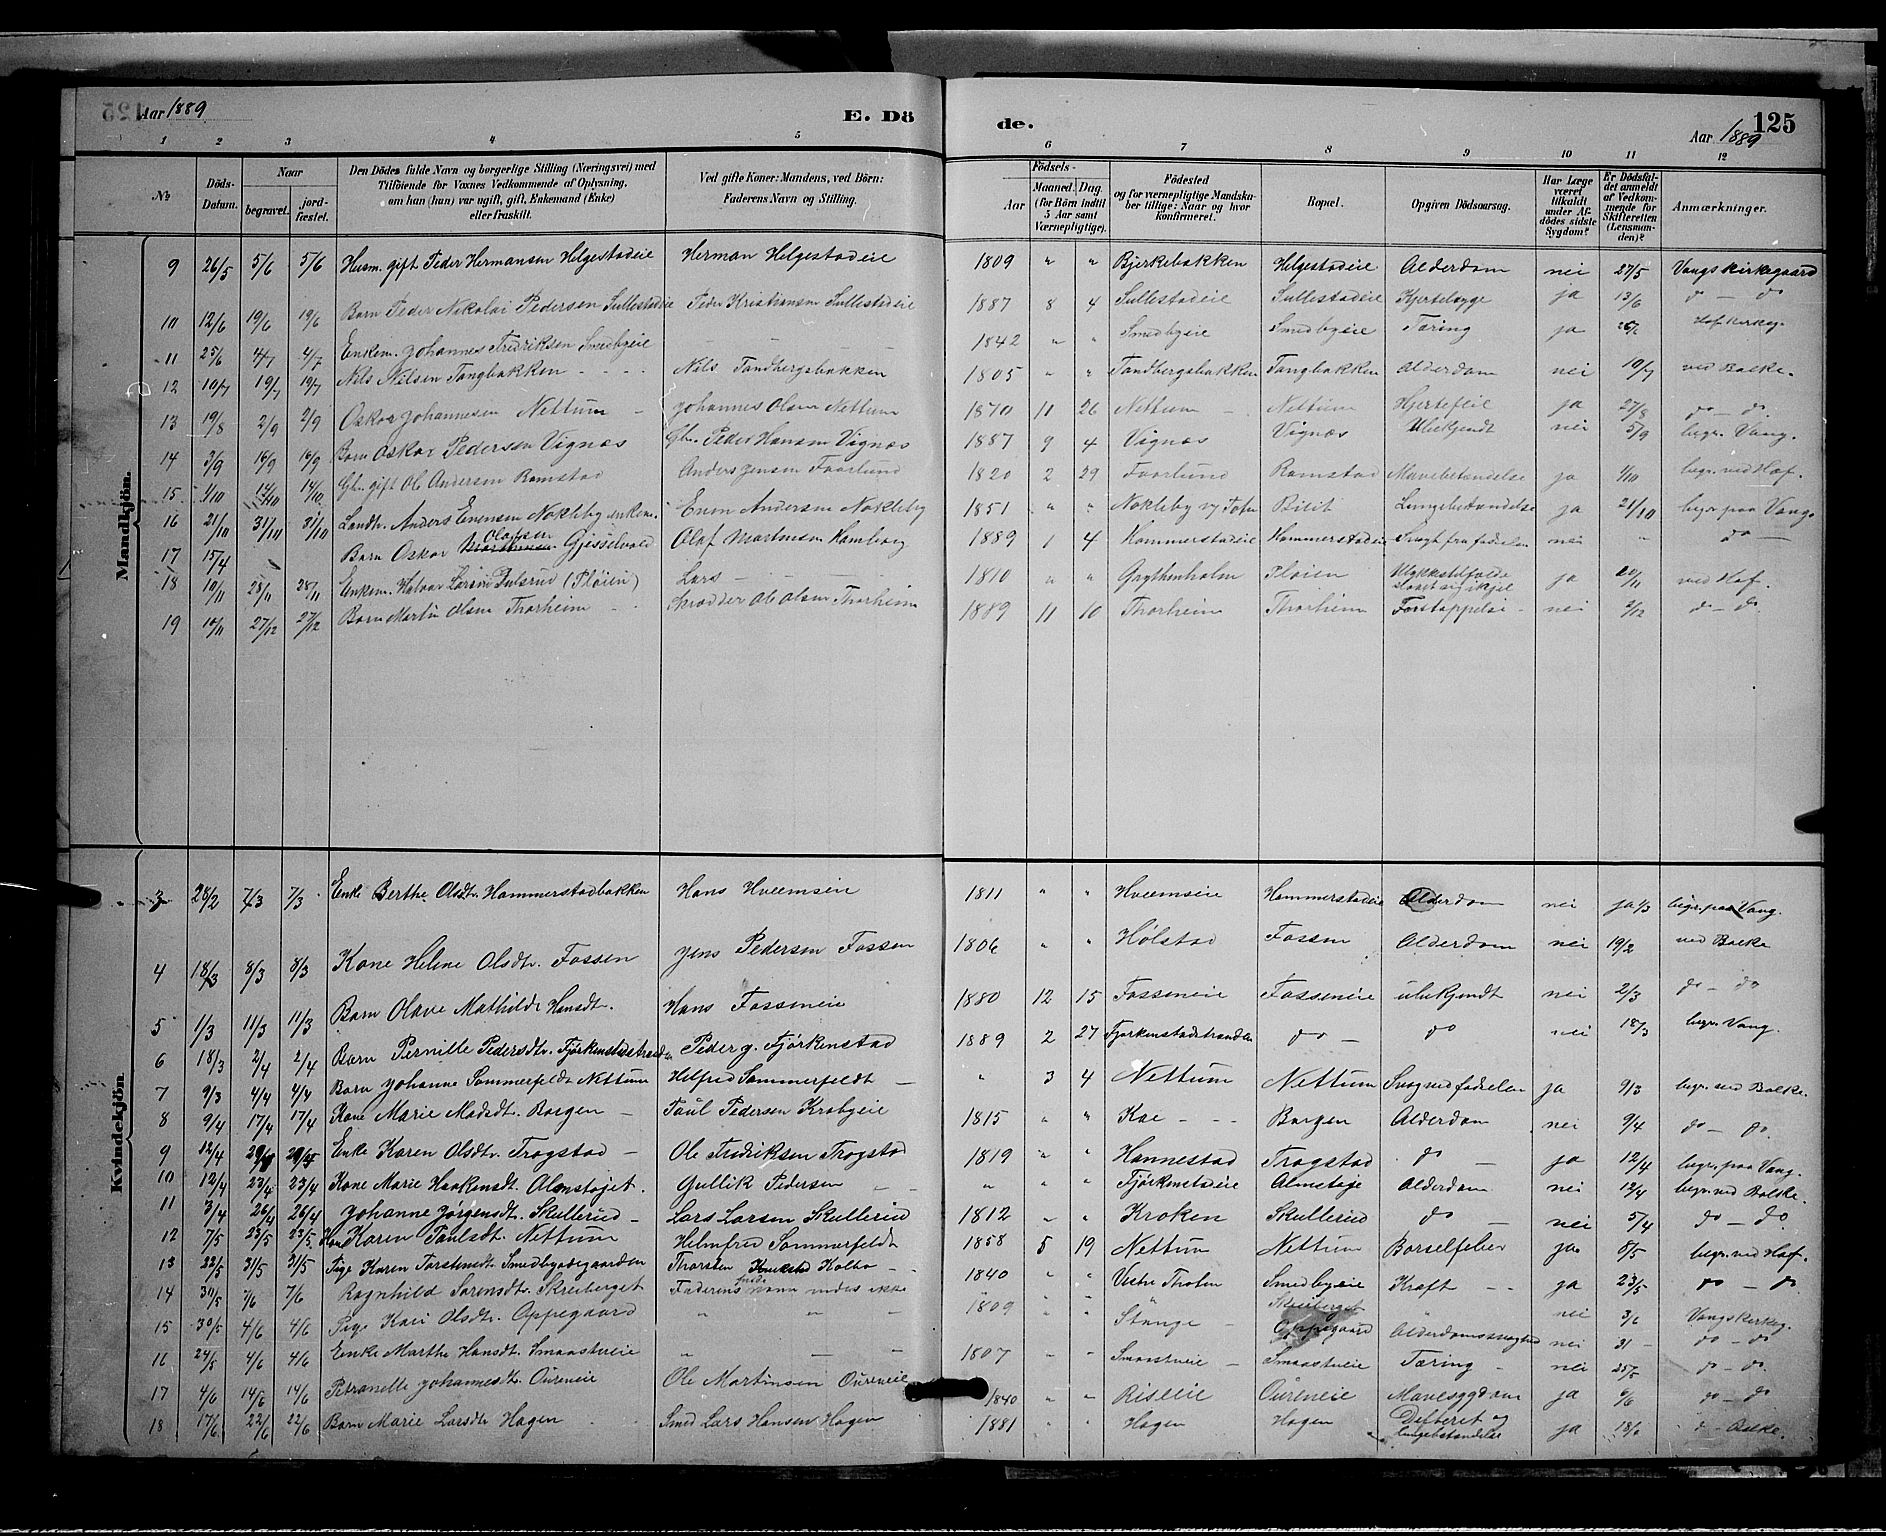 Aar 1889
E. Dö
de.
125
Aar 1889
1 2 3 4 5 6 7 8 9 10 11 12
№
Döds-Datum.
Naar
begravet.
jord-fæstet.
Den Dödes fulde Navn og borgerlige Stilling (Næringsvei) med
Tilföiende for Voxnes Vedkommende af Oplysning,
om han (hun) var ugift, gift, Enkemand (Enke)
eller fraskilt.
Ved gifte Koner: Mandens, ved Börn:
Faderens Navn og Stilling.
Födsels-
Aar
Maaned. Dag.
(for Börn indtil
5 Aar samt
Værnepligtige).
Födested
og for værnepligtige Mandska-
ber tillige: Naar og hvor
konfirmeret.
Bopæl.
Opgiven Dödsaarsag.
Har Læge
været
tilkaldt
under Af-
dödes sidste
Sygdom?
Er Dödsfal-
det anmeldt
af Vedkom-
mende for
Skifteretten
(Lensman-
den)?
Anmærkninger.
Mandkjön.
9 26/5 5/6 5/6 Husm. gift Peder Hermansen Helgestadeie Herman Helgestadeie 1809 " " Bjerkebakken Helgestadeie Alderdom nei 27/5 Vangs kirkegaard
10 12/6 19/6 19/6 Barn Peder Nikolai Pedersen Sullestadeie Peder Kristiansen Sullestadeie 1887 8 4 Sullestadeie Sullestadeie ja 13/6 do - do
11 25/6 4/7 4/7 Enkem. Johannes Fredriksen Smedbyeie - - - 1842 " " Smedbyeie Smedbyeie Tæring ja Hof kirkeg.
12 10/7 19/7 19/7 Nils Nelsen Tangbakken - - - - Nils Tandbergsbakken 1805 " " Tandbergsbakken Tangbakken Alderdom nei 10/7 ved Balke.
13 19/8 2/9 2/9 Oskar Johannesen Nettum - Johannes Olsen Nettum 1870 11 26 Nettum - Nettum Hjertefeil ja 27/8 do - do.
14 3/9 16/9 16/9 Barn Oskar Pedersen Vignæs Gbr. Peder Hansen Vignæs 1887 9 4 Vignæs Vignæs Ubekjendt nei 5/9 begr. Vang.
15 1/10 14/10 14/10 Gbr. gift Ole Andersen Ramstad Anders Jensen 1820 2 29 Ramstad Mavebetændelse ja 1/10 begr. ved Hof.
16 21/10 31/10 31/10 Landv. Anders Evensen Nøkleby enkem. Even Andersen Nøkleby 1851 " " Nøkleby Totn Bilit Lungebetændelse ja 21/10 begr. paa Vang.
17 15/4 Barn Oskar Olafsen Gjesselvold Olaf Martinsen Hamborg 1889 1 4 Hammerstadeie Hammerstadeie Svagt fra fødselen nei " do -
18 10/11 28/11 28/11 Enkem. Halvor Larsen Dulsrud (Pløien) Lars - - - 1810 " " Grythenholm Pløien Ulykkestilfælde ja 20/11 ved Hof.
19 10/11 27/12 27/12 Barn Martin Olsen Thorheim - - Skrædder Ole Olsen Thorheim 1889 11 10 Thorheim Thorheim Forstoppelse - nei 2/12 do - do
Kvindekjön.
3 28/2 7/3 7/3 Enke Berthe Olsdtr. Hammerstadbakken Hans Hveemseie 1811 " " Hveemseie Hammerstadeie Alderdom nei ja 1/3 begr. paa Vang.
4 18/3 8/3 8/3 Kone Helene Olsdtr. Fossen Jens Pedersen Fossen 1806 " " Hølstad Fossen Alderdom nei 19/2 ved Balke
5 1/3 11/3 11/3 Barn Olave Mathilde Hansdt. Hans Fosseneie 1880 12 15 Fosseneie Fosseneie ubekjendt nei 2/3 do - do
6 18/3 2/4 2/4 Barn Pernille Pedersdtr. Fjørkenstadstranden Peder G. Fjørkenstad 1889 2 27 Fjørkenstadstranden do - do nei 18/3 begr. Vang.
7 9/3 4/4 4/4 Barn Johanne Sommerfeldt Nettum Helfred Sommerfeldt - " 3 4 Nettum Nettum Svag ved fødselen ja 9/3 begr. ved Balke.
8 9/4 17/4 17/4 Kone Marie Madsdt. Borgen - Paul Pedersen Krabyeie 1815 " " Kae - - - Borgen Alderdom nei 9/4 do - do.
9 12/4 29/4 29/4 Enke Karen Olsdtr. Trogstad - Ole Fredriksen Trogstad 1819 " " Hannestad Trogstad do - ja 12/4 begr. paa Vang.
10 12/4 23/4 23/4 Kone Marie Haakensdt. Alenstøjet. Gullik Pedersen - " " " Fjørkenstadeie Almstøje Alderdom nei 12/4 begr. ved Balke.
11 3/4 26/4 26/4 Johanne Jørgensdt. Skullerud - Lars Larsen Skullerud 1812 " " Kroken Skullerud do - nei 5/4 do - do.
12 7/5 23/5 23/5 Karen Paulsdt. Nettum Helmfred Sommerfeldt 1858 5 19 Nettum Nettum Barselfeber ja 8/5 begr. ved Hof.
13 22/5 31/5 31/5 Pige Karen Torstensdt. Smedbyødegaarden Thorsten Kolbo - - 1840 " " Vestre Thoten Smedbyeie Kræft - - ja 23/5 do - do
14 30/5 7/6 7/6 Ragnhild Sørensdt. Skreiberget Faderens navn vides ikke 1809 " " Skreiberget " nei 3/6 Vangs kirkeg.
15 30/5 4/6 4/6 Pige Kari Olsdtr. Oppegaard " " " Stange - Oppegaard Alderdomssvaghed nei 31 - do - do
16 24/5 4/6 4/6 Enke Marthe Hansdt. Smaastueie " - - 1807 " " Smaastueie - Smaastueie Tæring - nei 25/5 do - do.
17 4/6 14/6 14/6 Petronelle Johannesdt. Øureneie Ole Martinsen Øureneie 1840 " " Riseeie Øureneie Mavesygdom ja 6/6 do - do
18 17/6 22/6 22/6 Barn Marie Larsdtr Hagen - - Smed Lars Hansen Hagen 1881 " Hagen Hagen Difterit og lungebetændelse ja 18/6 Balke.